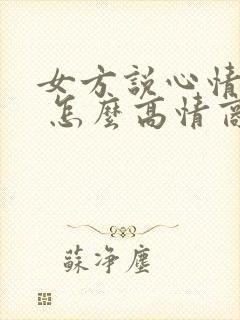 女方說心情
怎麼高情商
蘇淨塵